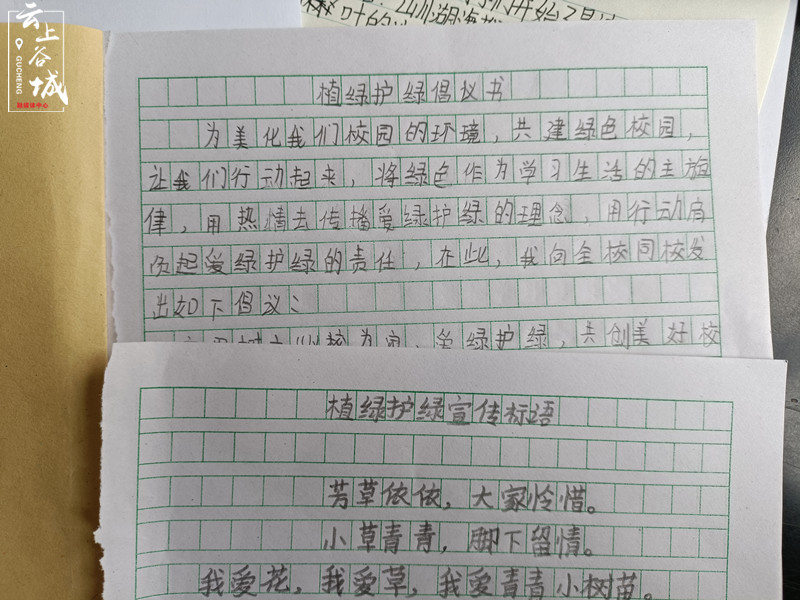 云上谷城
GUCHENG
融媒体中心
植绿护绿倡议书
为美化我们校园的环境，共建绿色校园，
让我们行动起来，将绿色作为学习生活的主旋
律，用热情去传播爱绿护绿的理念，用行动肩
负起爱绿护绿的责任，在此，我向全校同校发
出如下倡议：
为家，爱绿护绿，共创美好校
植绿护绿宣传标语
芳草依依，大家怜惜。
小草青青，脚下留情。
我爱花，我爱草，我爱青青小树苗。